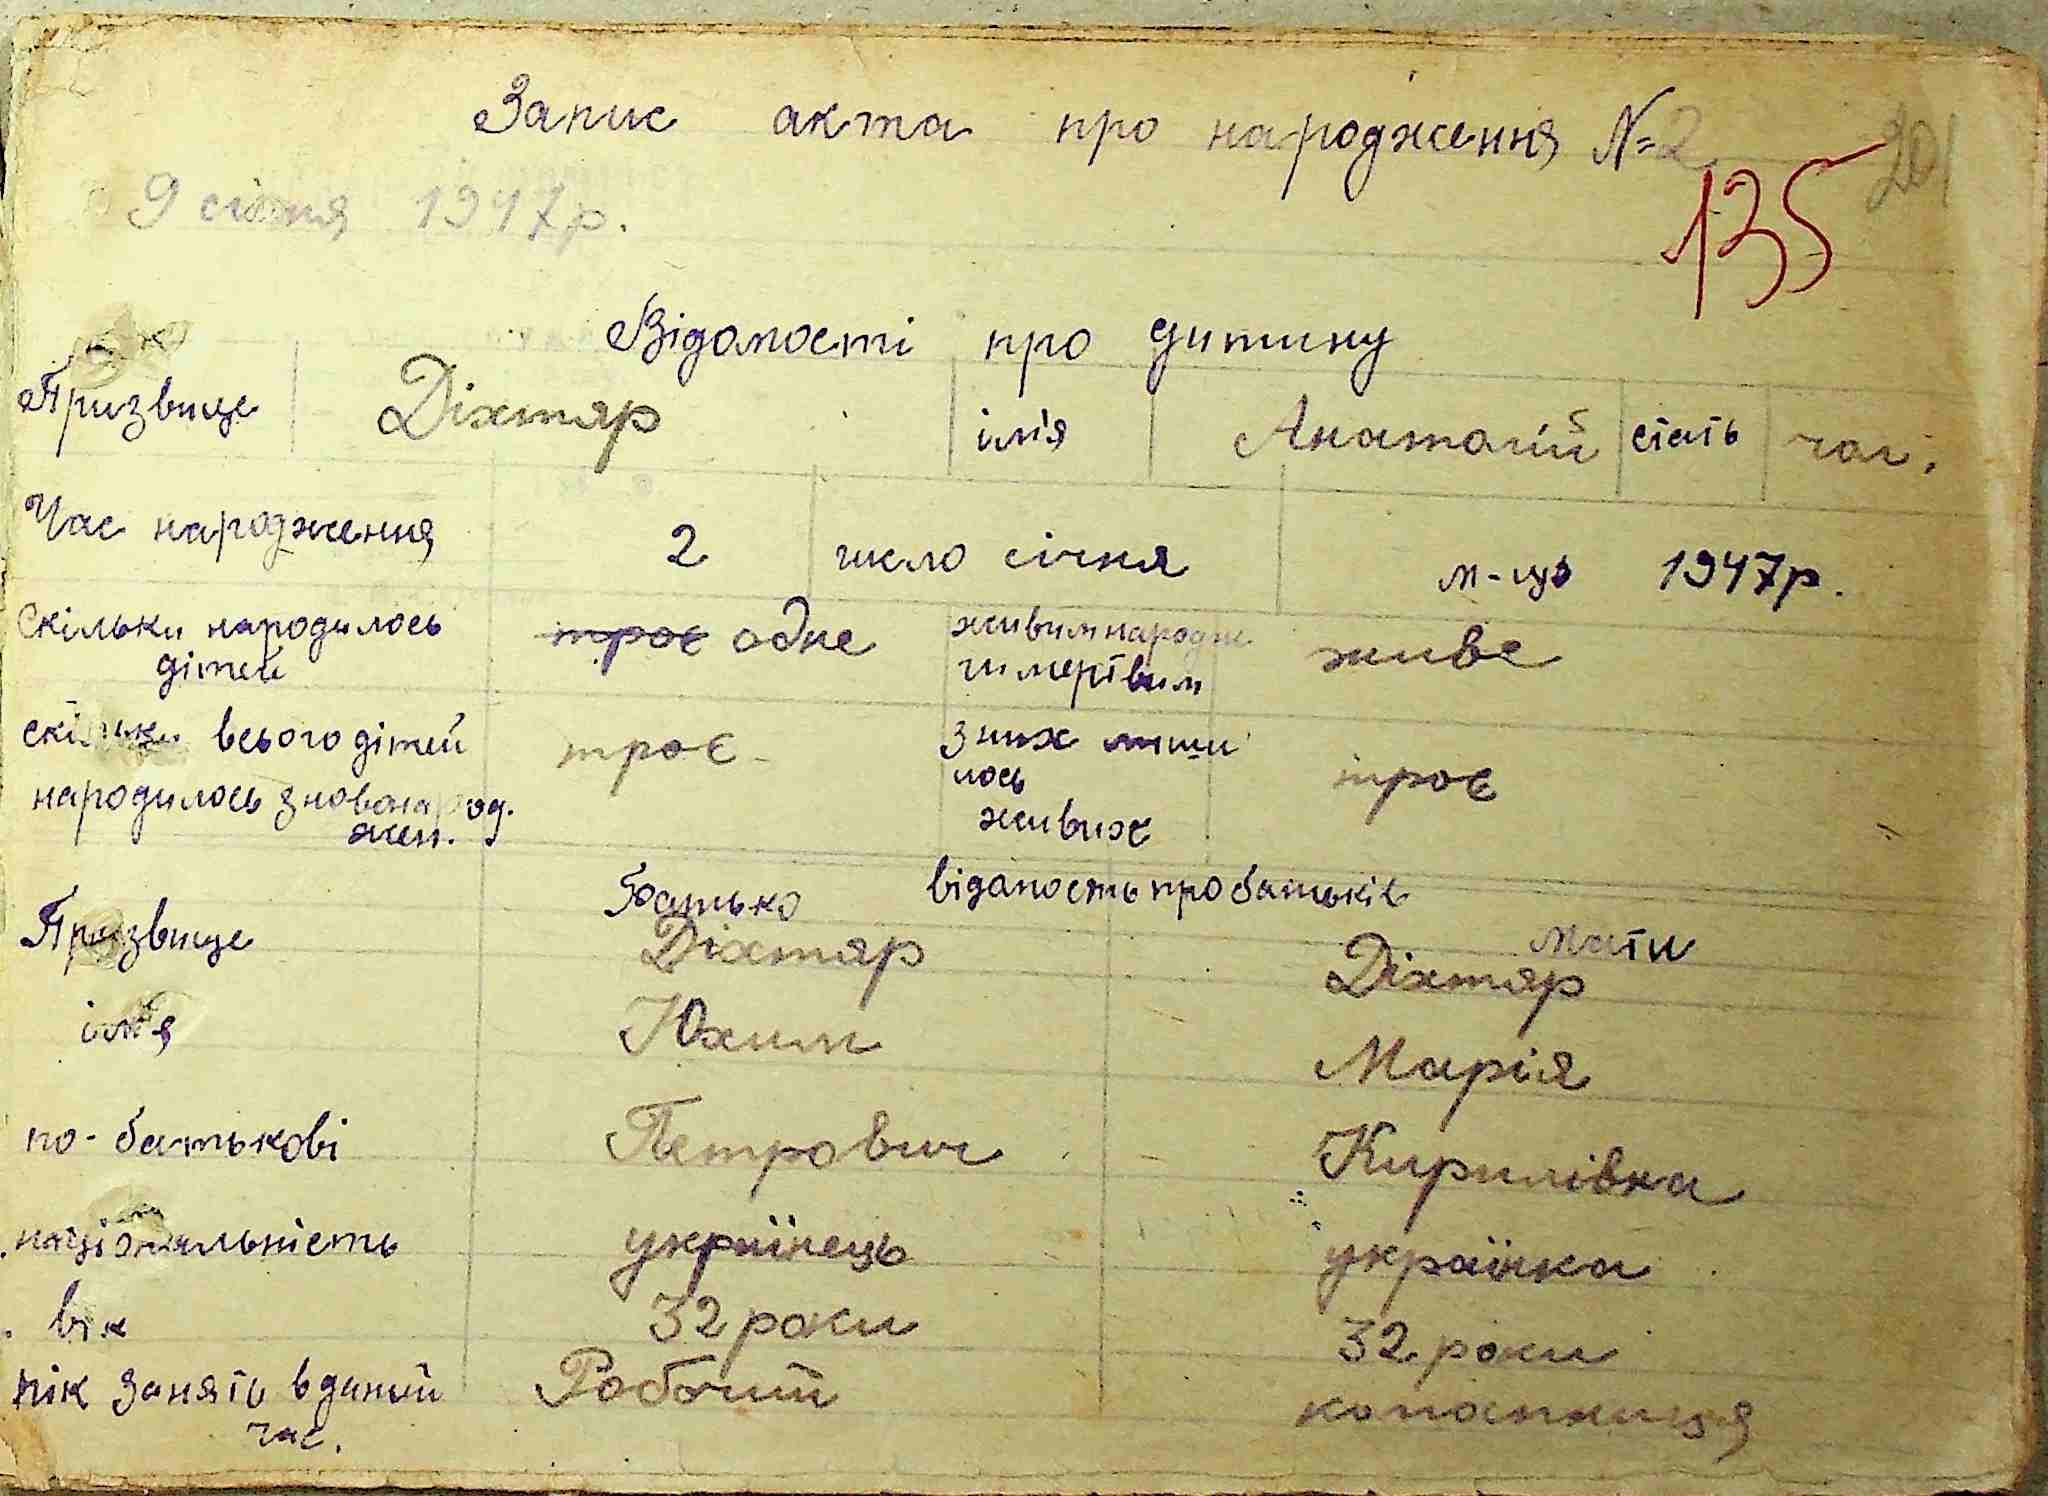 Запис акта про народження №2
201
135
9 січня 1947р.
Відомості про дитину
Призвище Діхтяр ім'я Анатолій стать чол.
Час народження 2 число січня м-ць 1947р.
скільки народилось дітей троє одне живим народж чи мертвим живе
скільки всього дітей народилось з новонарод.жен. троє з них лиши лось живих троє
батько відамость про батьків мати
Призвище Діхтяр Діхтяр
ім'я Юхим Марія
по-батькові Петрович Кирилівна
національність українець українка
вік 32 роки 32 роки
занять в даний час. Робочий